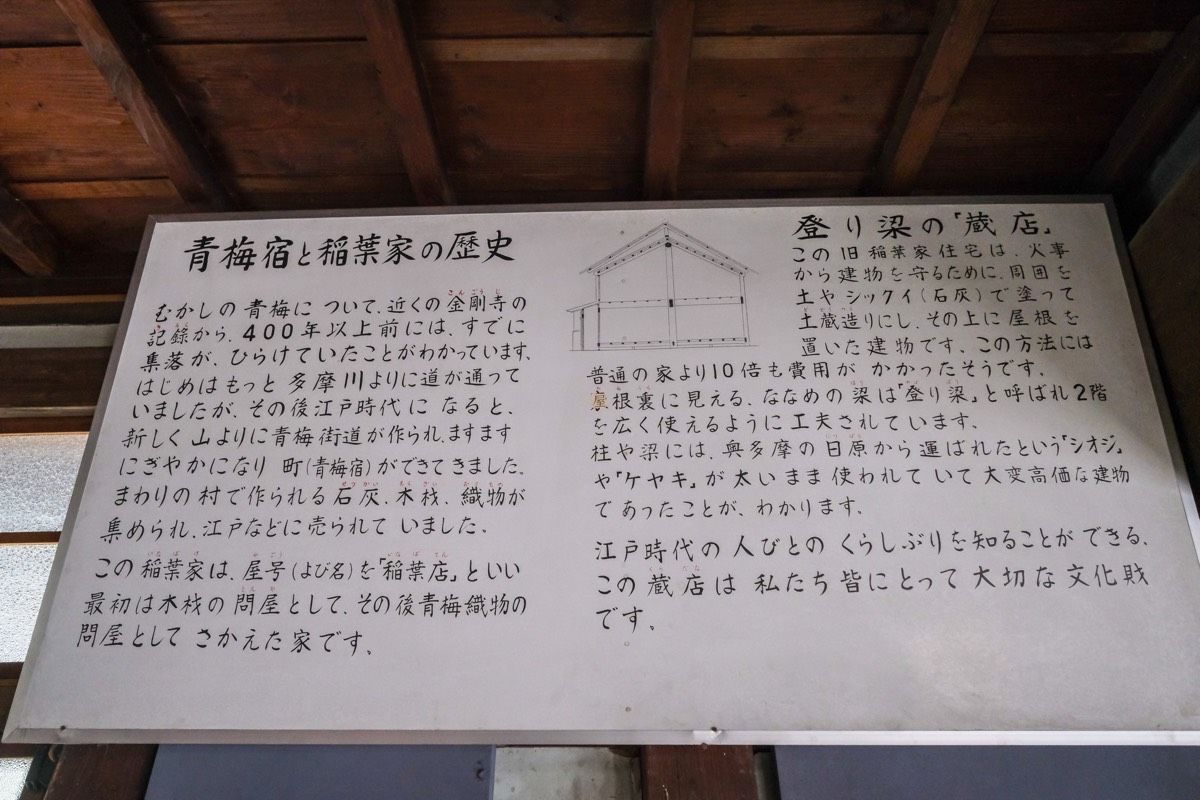 青梅宿と稲葉家の歴史
むかしの青梅について、近くの金剛寺の
記録から、400年以上前には、すでに
集落が、ひらけていたことがわかっています、
はじめはもっと多摩川よりに道が通って
いましたが、その後江戸時代になると、
新しく山よりに青梅街道が作られ、ますます
にぎやかになり町(青梅宿)ができてきました。
まわりの村で作られる石灰、木材、織物が
集められ、江戸などに売られていました、
この稲葉家は、屋号(よび名)を「稲葉店」といい
最初は木材の問屋として、その後青梅織物の
問屋としてさかえた家です、
登り梁の「蔵店」
この旧稲葉家住宅は、火事
から建物を守るために、周囲を
土やシックイ(石灰)で塗って
土蔵造りにし、その上に屋根を
置いた建物です、この方法には
普通の家より10倍も費用がかかったそうです。
屋根裏に見える、ななめの梁は「登り梁」と呼ばれ2階
を広く使えるように工夫されています。
柱や梁には、奥多摩の日原から運ばれたという「シオジ」
や「ケヤキ」が太いまま使われていて大変高価な建物
であったことが、わかります。
江戸時代の人びとのくらしぶりを知ることができる、
この蔵店は私たち皆にとって大切な文化財
です、